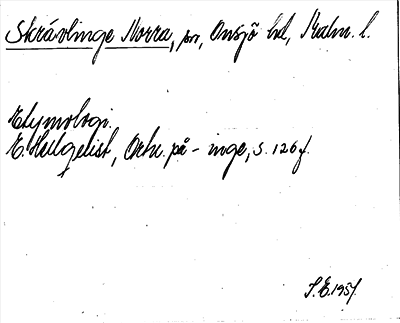 Skrävlinge Norra, sn, Onsjö hd, Malm. l.
Etymologi.
E. Hellquist, Ortn. på -inge, s. 126 f.
S.E. 1951.